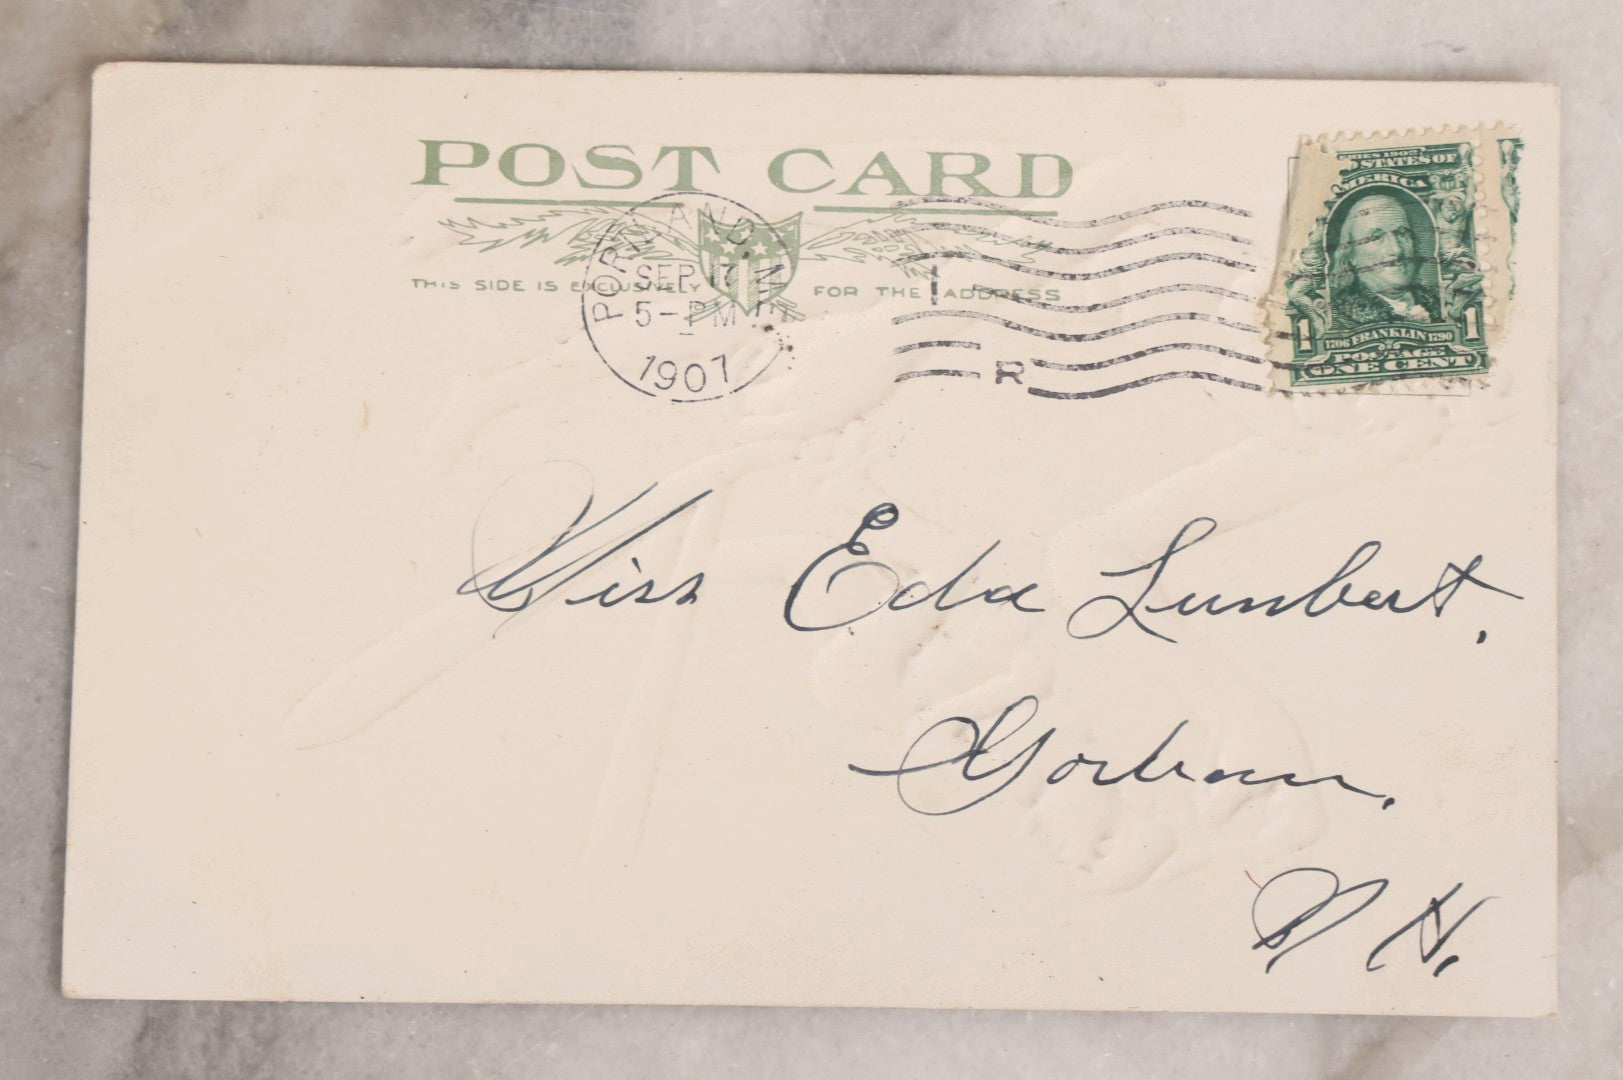 POST CARD
THIS SIDE IS EXCLUSIVELY FOR THE ADDRESS
PORTLAND, ME.
SEP 17
5-PM
1907
1
R
SERIES 1902
STATES OF
AMERICA
1 1706 FRANKLIN 1790 1
POSTAGE
ONE CENT
Miss Eda Lunbert,
Gorham,
N H,